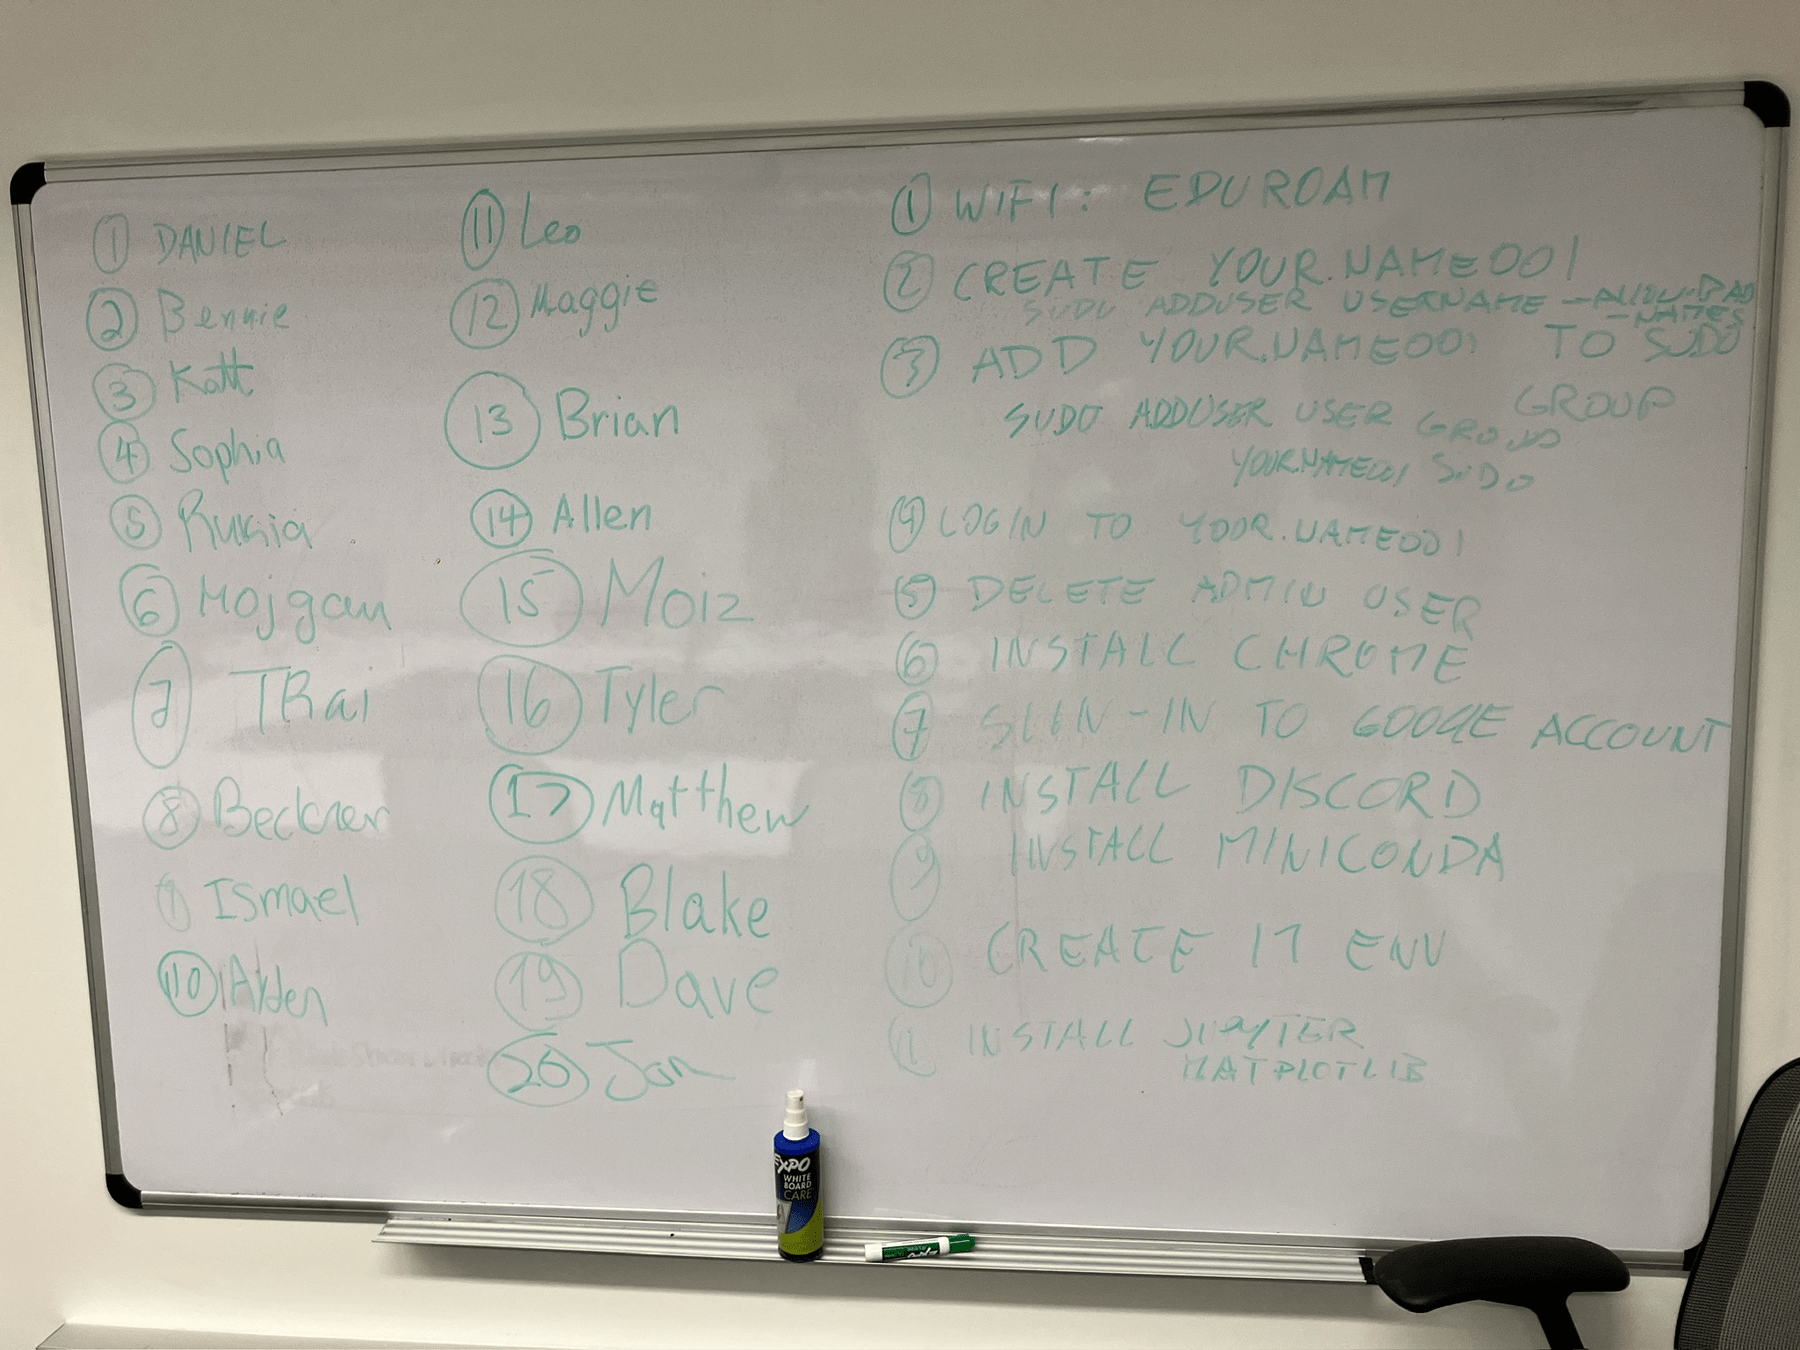 1 DANIEL
2 Bennie
3 Katt
4 Sophia
5 Rukia
6 Mojgan
7
8 Beckner
9 Ismael
10 Ayden
11 Leo
12 Maggie
13 Brian
14 Allen
15 Moiz
16 Tyler
17 Matthew
18 Blake
19 Dave
20 Jon
1 WIFI: EDUROAM
2 CREATE YOUR.NAME001
SUDO ADDUSER USERNAME --ALLOW-BAD
-NAMES
3 ADD YOUR.NAME001 TO SUDO
GROUP
SUDO ADDUSER USER GROUP
YOUR.NAME001 SUDO
4 LOGIN TO YOUR.NAME001
5 DELETE ADMIN USER
6 INSTALL CHROME
7 SIGN-IN TO GOOGLE ACCOUNT
8 INSTALL DISCORD
9 INSTALL MINICONDA
10 CREATE ENV
11 INSTALL JUPYTER
MATPLOTLIB
EXPO
WHITE
BOARD
CARE